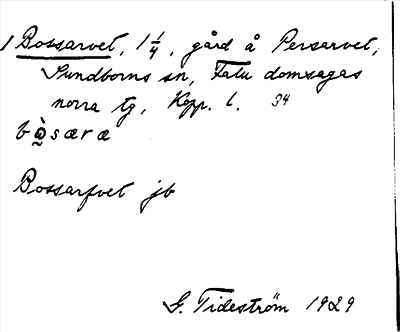 1 Bossarvet, 1 1/4, gård å Persarvet,
Sundborns sn, Falu domsagas
norra tg, Kopp. l. 34
bòsæræ
Bossarfvet jb
G. Tideström 1929